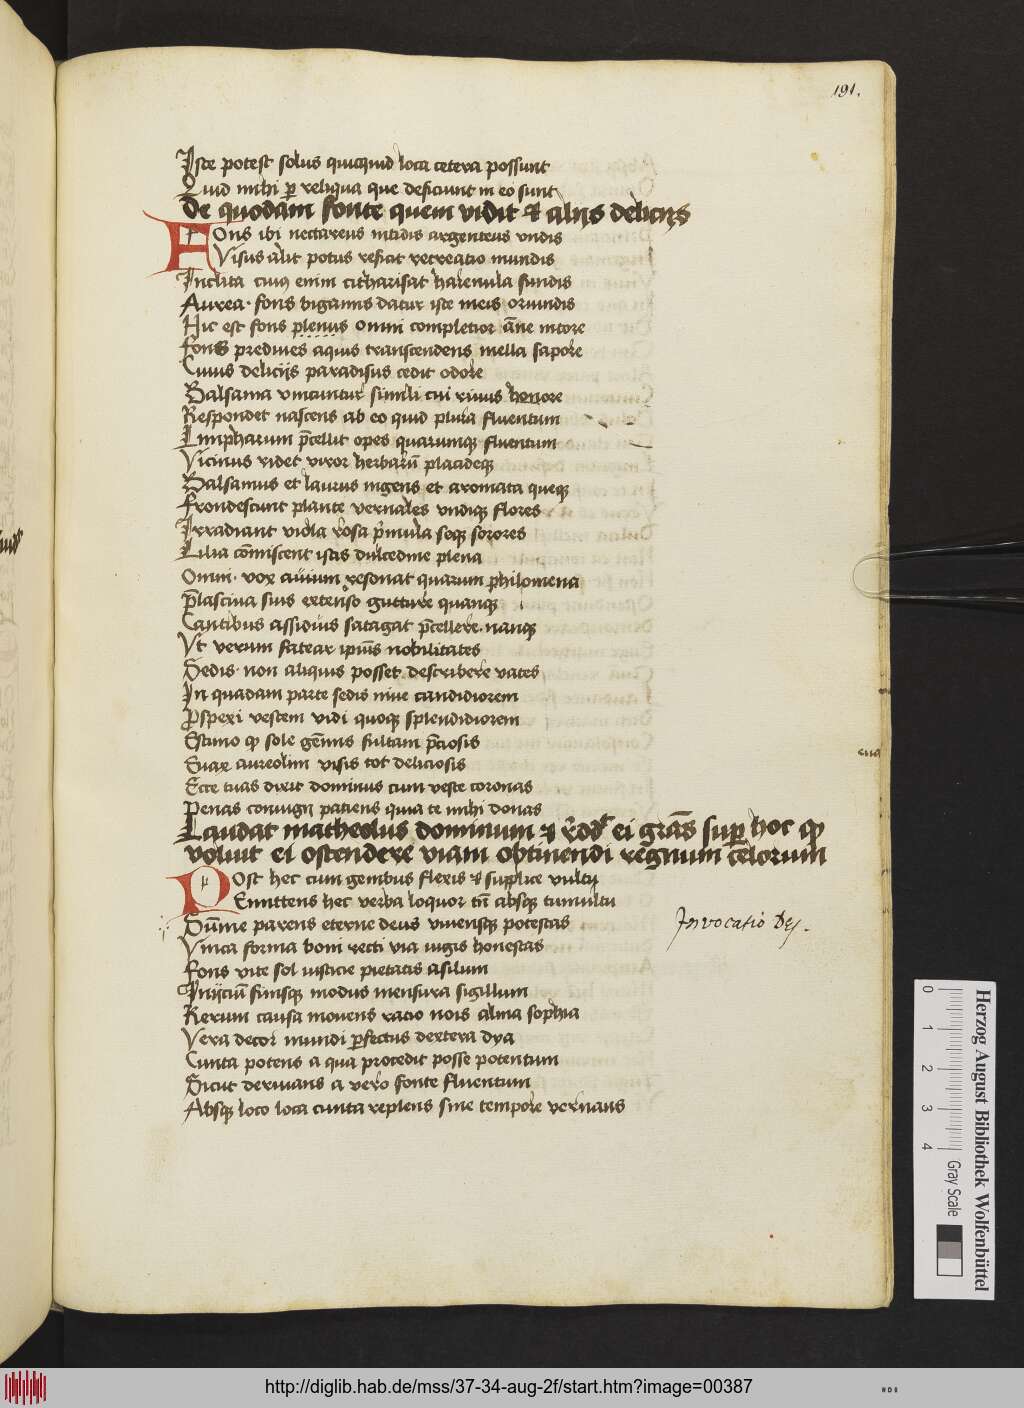 191.
Iste potest solus quicquid loca cetera possunt
Quid mihi ꝑ reliqua que deficiunt in eo sunt
De quodam fonte quem vidit et alijs delicijs
FOns ibi nectareus nitidis argenteus vndis
Visus alit potus reficit recreatio mundis
Inclita cuiꝯ enim citharisat harenula fundis
Aurea fons bigamis datur iste meis oriundis
Hic est fons plenus omni completior āne intore
Fons prediues aquis transcendens mella sapore
Cuius delicijs paradisus cedit odore
Balsama vincuntur simili cui riuus honore
Respondet nascens ab eo quid plura fluentum
Limpharum p̄cellit opes quarumqꝫ fluentum
Vicinus ridet viror herbarū placideqꝫ
Balsamus et laurus ingens et aromata queqꝫ
Frondescunt plante vernales vndiqꝫ flores
Irradiant viola rosa p̄mula seqꝫ sorores
Lilia cōmiscent istis dulcedine plena
Omni vox auium resonat quarum philomena
P̄lasciua suis extenso gutture quamqꝫ
Cantibus assiduis satagat p̄cellere namqꝫ
Vt verum fatear ipiūs nobilitates
Sedis non aliquis posset describere vates
In quadam parte sedis niue candidiorem
Prspexi vestem vidi quoqꝫ splendidiorem
Estimo qꝫ sole gēmis fultam p̄ciosis
Suax aureolim visis tot deliciosis
Ecce tuas dixit dominus cum veste coronas
Penas coniugij patiens quia te mihi donas
Laudat matheolus dominum et r̄dd̄t ei gr̄as suꝑ hoc qꝫ
voluit ei ostendere viam obtinendi regnum celorum
POst hec cum genibus flexis et supplice vultu
Emittens hec verba loquor tn̄ absqꝫ tumultu
Sūme parens eterne deus viuensqꝫ potestas
Invocatio Dej.
Vnica forma boni recti via iugis honestas
Fons vite sol iusticie pietatis asilum
Inijciū finisqꝫ modus mensura sigillum
Rerum causa mouens ratio nois alma sophia
Vera decor mundi ꝑfectus dextera dya
Cuncta potens a qua procedit posse potentum
Sicut deriuans a vero fonte fluentum
Absqꝫ loco loca cuncta replens sine tempore vernans
0 1 2 3 4
Gray Scale
Herzog August Bibliothek Wolfenbüttel
http://diglib.hab.de/mss/37-34-aug-2f/start.htm?image=00387